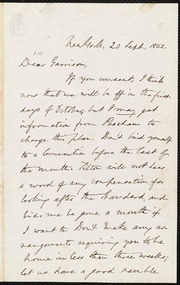 New York, 20 Sept. 1862.
Dear Garrison,
If you consent, I think
now that we will be off in the first
days of October, but I may get
information from Beecher to
change this plan. Don't bind yourself
to a Convention before the last of
the month. Tilton will not hear
a word of any compensation for
looking after the Standard, and
bids me be gone a month if
I want to. Don't make any ar-
rangements requiring you to be
home in less than three weeks;
let us have a good ramble